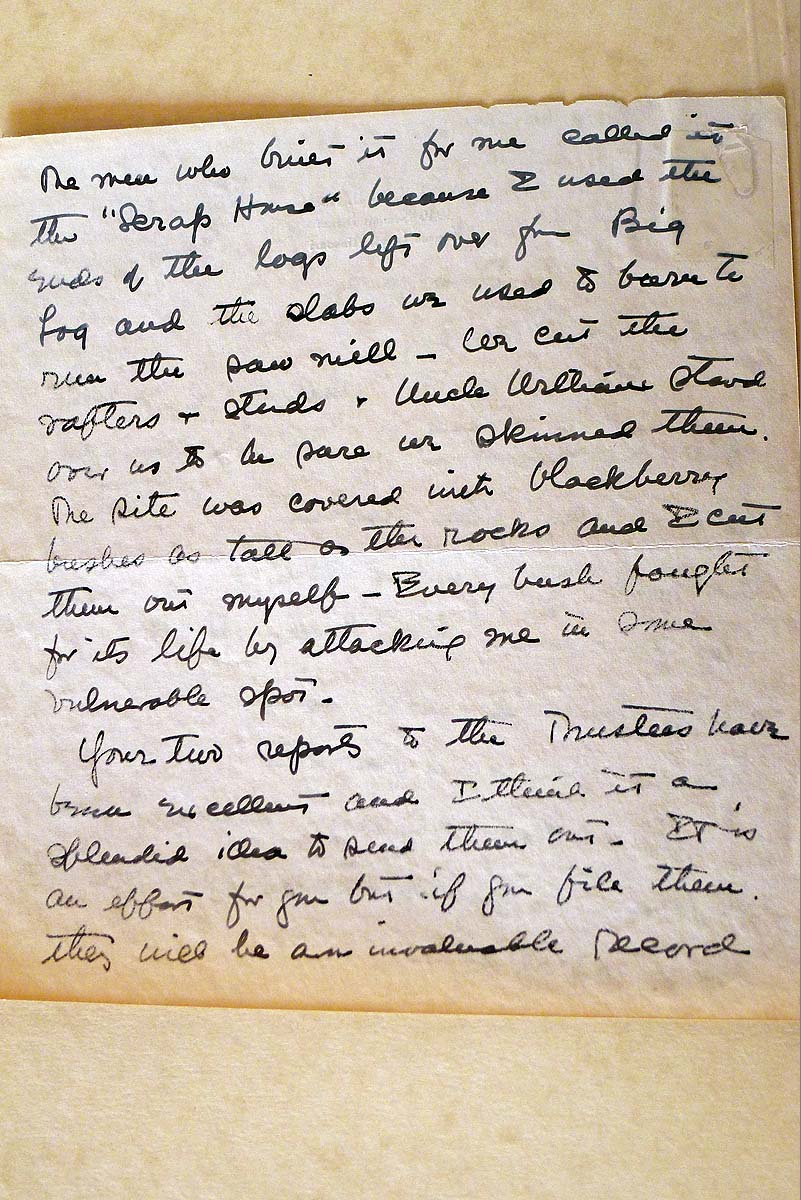 The men who built it for me called it
the "Scrap House" because I used the
ends of the logs left over from Big
Log and the slabs we used to burn to
run the saw mill - We cut the
rafters + studs + Uncle William stood
over us to be sure we skinned them.
The site was covered with blackberry
bushes as tall as the rocks and I cut
them out myself - Every bush fought
for its life by attacking me in some
vulnerable spot.
Your two reports to the Trustees have
been excellent and I think it a
splendid idea to send them out. It is
an effort for you but if you file them.
they will be an invaluable record